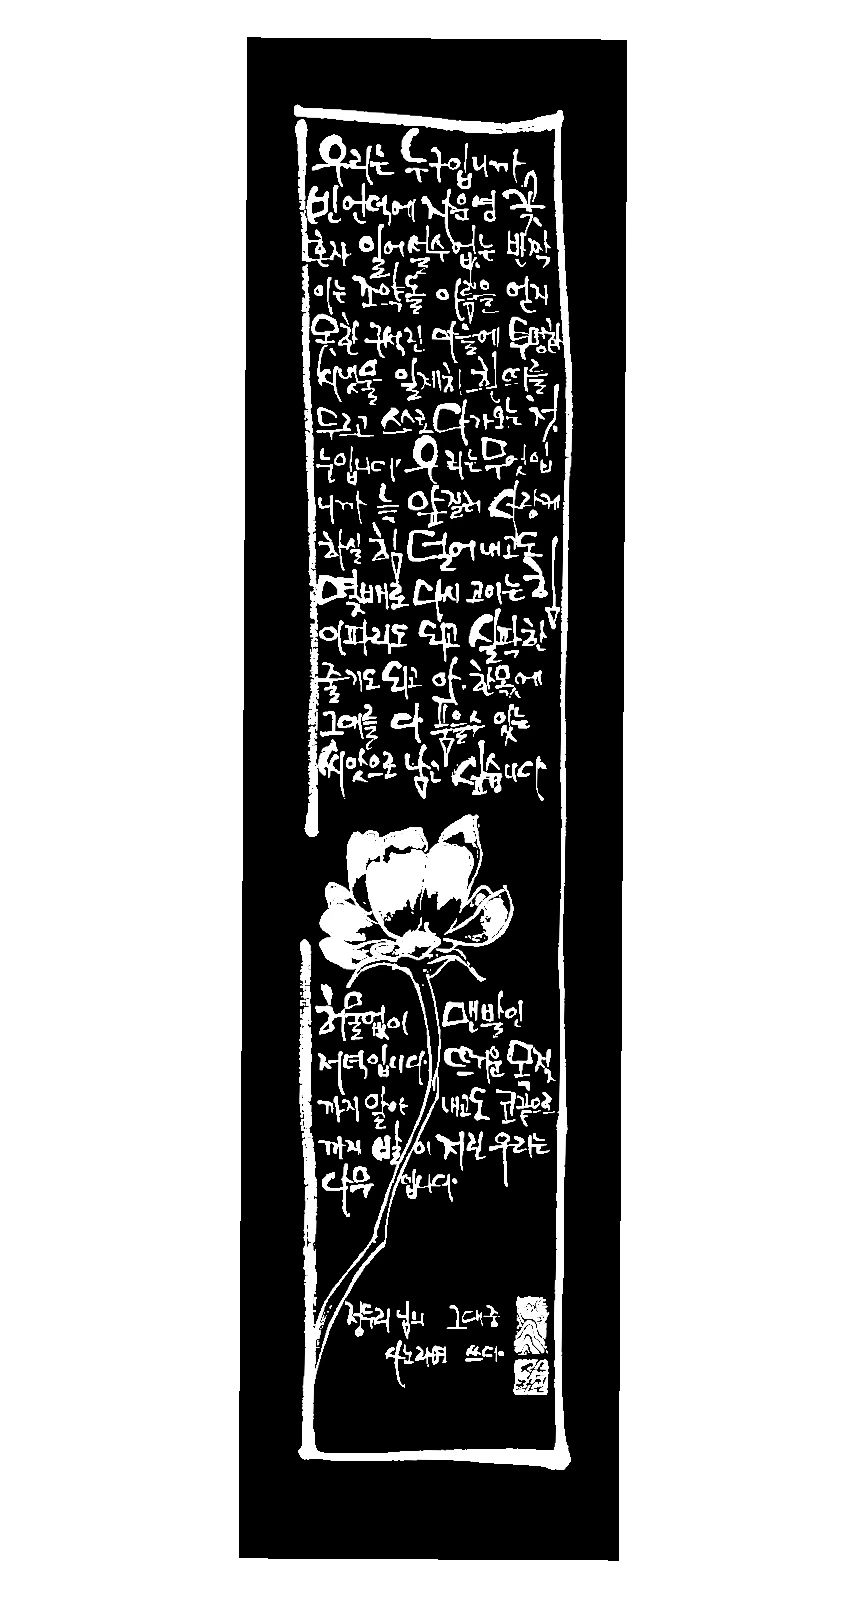 우리는 누구입니까
빈 언덕에 자운영 꽃
혼자 일어설수 없는 반짝
이는 조약돌 이름을 얻지
못한 구석진 마을에 투명한
시냇물 일제히 흰 띠를
두르고 스스로 다가오는 첫
눈입니다 우리는 무엇입
니까 늘 앞질러 사랑케
하실 힘 덜어내고도
몇배로 다시 고이는 힘
이파리도 되고 실팍한
줄기도 되고 아. 한몫에
그대를 다 품을수 있는
씨앗으로 남고 싶습니다
허물없이 맨발인
저녁입니다. 뜨거운 목젖
까지 알아 내고도 코끝으로
까지 발이 저린 우리는
나무 입니다.
정두리님의 그대 중
쓰다.